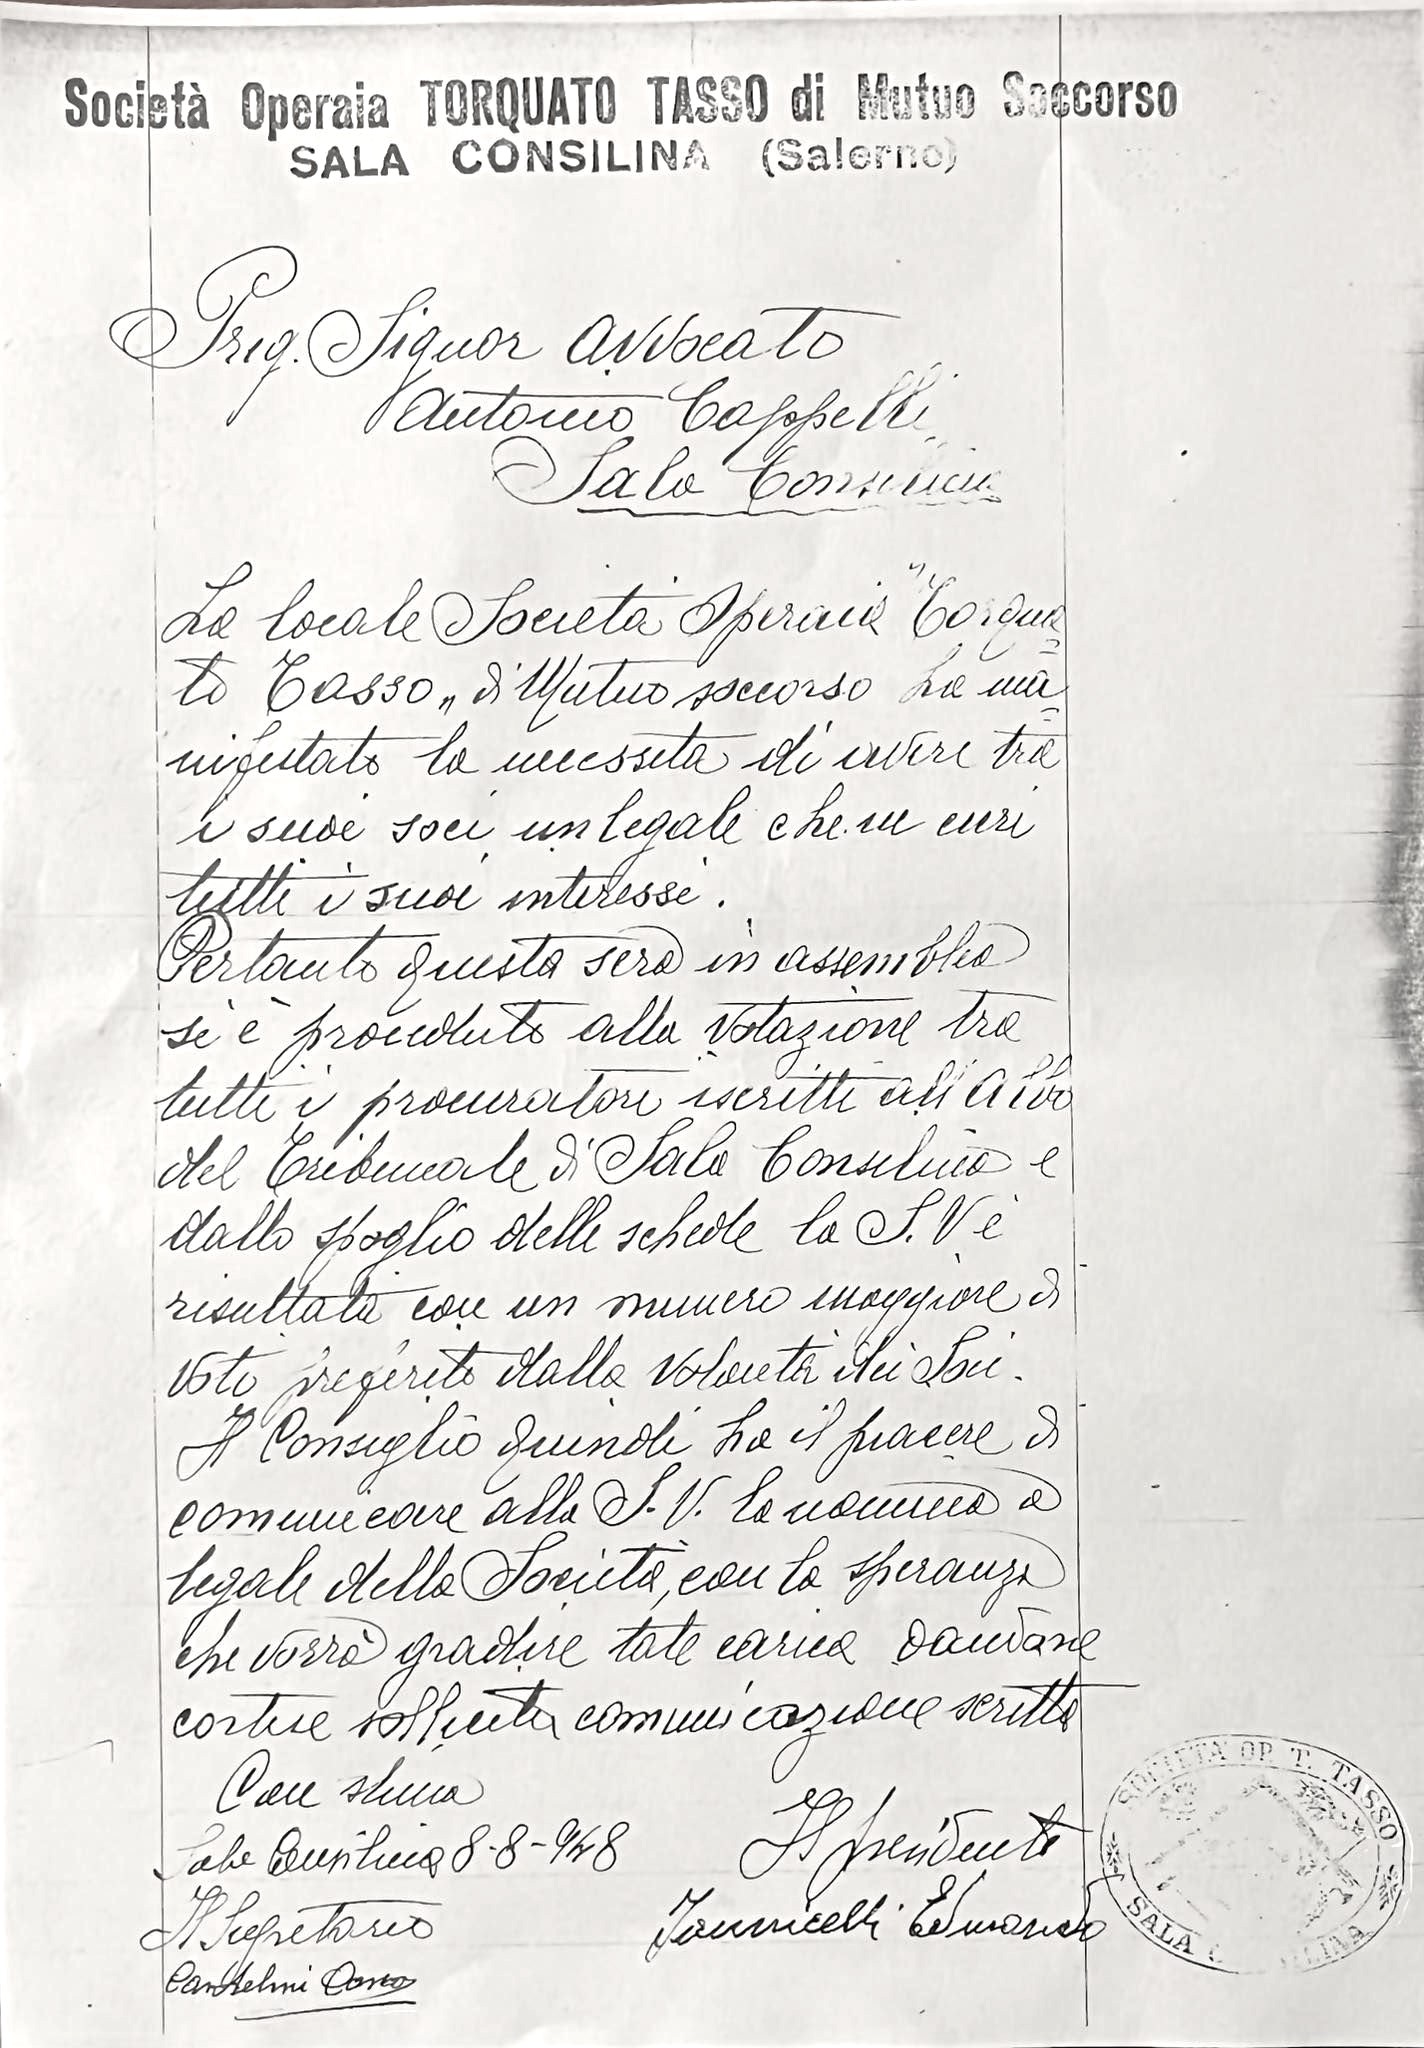 Società Operaia TORQUATO TASSO di Mutuo Soccorso
SALA CONSILINA (Salerno)
Preg. Signor Avvocato
Antonio Cappelli
Sala Consilina
La locale Società Operaia "Torqua=
to Tasso„ di Mutuo soccorso ha ma=
nifestato la necessità di avere tra
i suoi soci un legale che ne curi
tutti i suoi interessi.
Pertanto questa sera in assemblea
si è proceduto alla votazione tra
tutti i procuratori iscritti all'Albo
del Tribunale di Sala Consilina e
dallo spoglio delle schede la S.V è
risultata con un numero maggiore di
voto preferito dalla volontà dei Soci.
Il Consiglio quindi ha il piacere di
comunicare alla S.V. la nomina a
legale della Società, con la speranza
che vorrà gradire tale carica dandone
cortese sollecita comunicazione scritta
Con stima
Sala Consilina 8-8-948
Il Presidente
Il Segretario
Iannicelli Edmondo
SOCIETÀ OP. T. TASSO
SALA